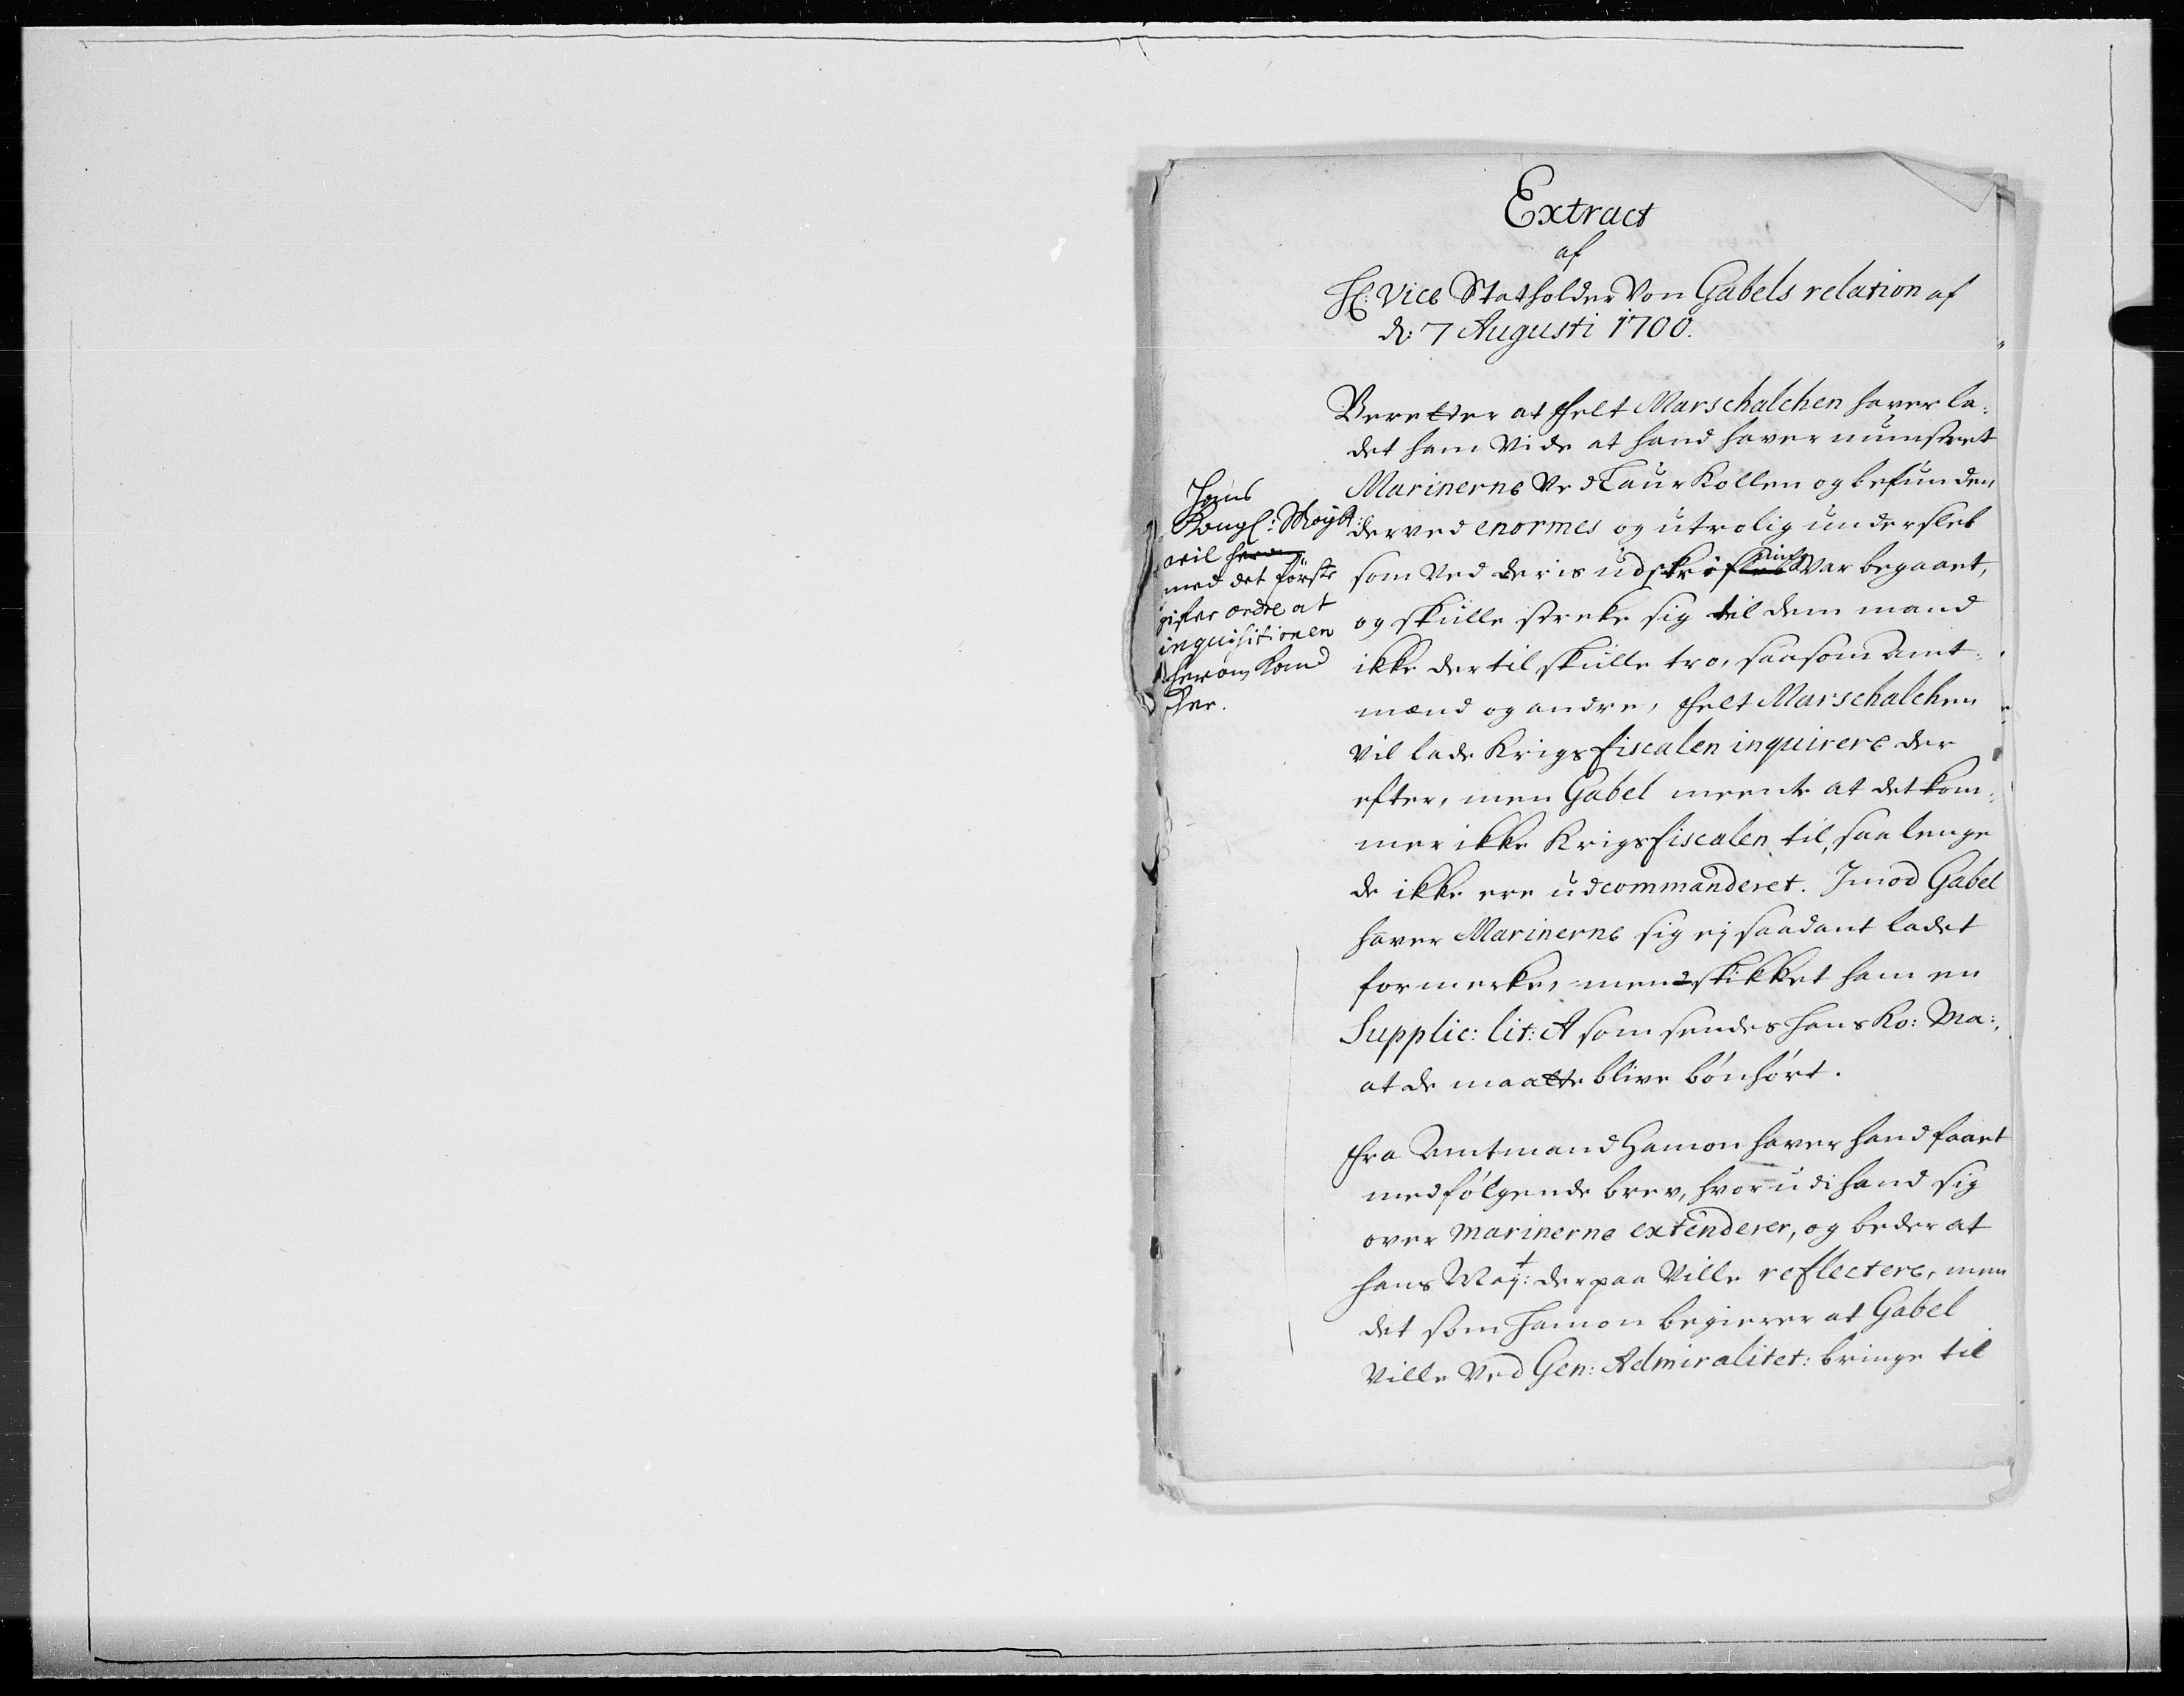 Extract
af
H: Vice Statholder Von Gabels relation af
d: 7 Augusti 1700.
Beretter at Felt Marschalchen haver la:
det ham vide at hand haver munstret
Marinerne ved Taur Kollen og befunden
derved enormes og utrolig undersleb
som ved deris udskrifning var begaaet,
og skulle streke sig til dem mand
ikke dertil skulle tro, saasom Amt:
mænd og andre, Felt Marschalchen
vil lade Krigs fiscalen inquirere der
efter, men Gabel meente at det kom:
mer ikke Krigsfiscalen til, saa lenge
de ikke ere udcommanderet. Imod Gabel
haver Marinerne sig ej saadant ladet
formerke, men skikket ham en
Supplic: lit: A som sendes hans Ko: Ma:,
at de maatte blive bönhört.
Fra Amtmand Hamon haver hand faaet
medfölgende brev, hvorudi hand sig
over marinerne extenderer, og beder at
hans Maj:t derpaa ville reflectere, men
det som Hamon begierer at Gabel
ville ved Gen: Admiralitet: bringe til
Hans
Kongl: Mayt:
vil
med det förste
gifve ordre at
inquisitionen
herom kand
skee.